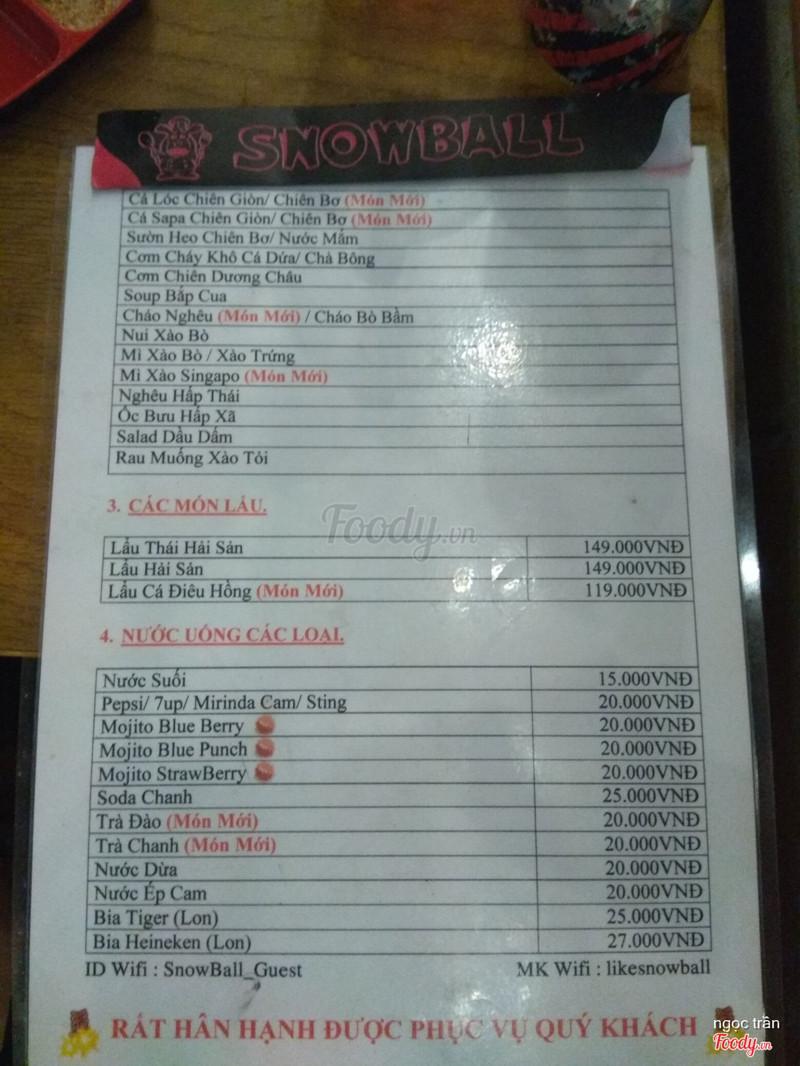 SNOWBALL
Cá Lóc Chiên Giòn/ Chiên Bơ (Món Mới)
Cá Sapa Chiên Giòn/ Chiên Bơ (Món Mới)
Sườn Heo Chiên Bơ/ Nước Mắm
Cơm Cháy Khô Cá Dứa/ Chà Bông
Cơm Chiên Dương Châu
Soup Bắp Cua
Cháo Nghêu (Món Mới) / Cháo Bò Bằm
Nui Xào Bò
Mì Xào Bò / Xào Trứng
Mì Xào Singapo (Món Mới)
Nghêu Hấp Thái
Ốc Bưu Hấp Xã
Salad Dầu Dấm
Rau Muống Xào Tỏi
3. CÁC MÓN LẨU.
Foody.vn
Lẩu Thái Hải Sản 149.000VNĐ
Lẩu Hải Sản 149.000VNĐ
Lẩu Cá Điêu Hồng (Món Mới) 119.000VNĐ
4. NƯỚC UỐNG CÁC LOẠI.
Nước Suối 15.000VNĐ
Pepsi/ 7up/ Mirinda Cam/ Sting 20.000VNĐ
Mojito Blue Berry 20.000VNĐ
Mojito Blue Punch 20.000VNĐ
Mojito StrawBerry 20.000VNĐ
Soda Chanh 25.000VNĐ
Trà Đào (Món Mới) 20.000VNĐ
Trà Chanh (Món Mới) 20.000VNĐ
Nước Dừa 20.000VNĐ
Nước Ép Cam 20.000VNĐ
Bia Tiger (Lon) 25.000VNĐ
Bia Heineken (Lon) 27.000VNĐ
ID Wifi : SnowBall_Guest MK Wifi : likesnowball
RẤT HÂN HẠNH ĐƯỢC PHỤC VỤ QUÝ KHÁCH
ngọc trần
Foody.vn